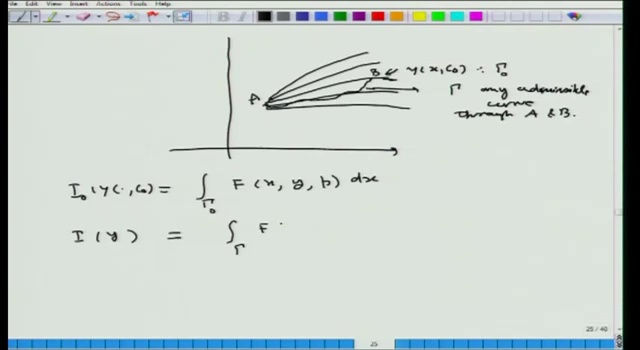 Edit View Insert Actions Tools Help
A
B y(x, c₀) : Γ₀
Γ any admissible
curve
through A & B.
I₀(y(., c₀) = ∫_Γ₀ F(x, y, p) dx
I(y) = ∫_Γ F
25 / 40
25